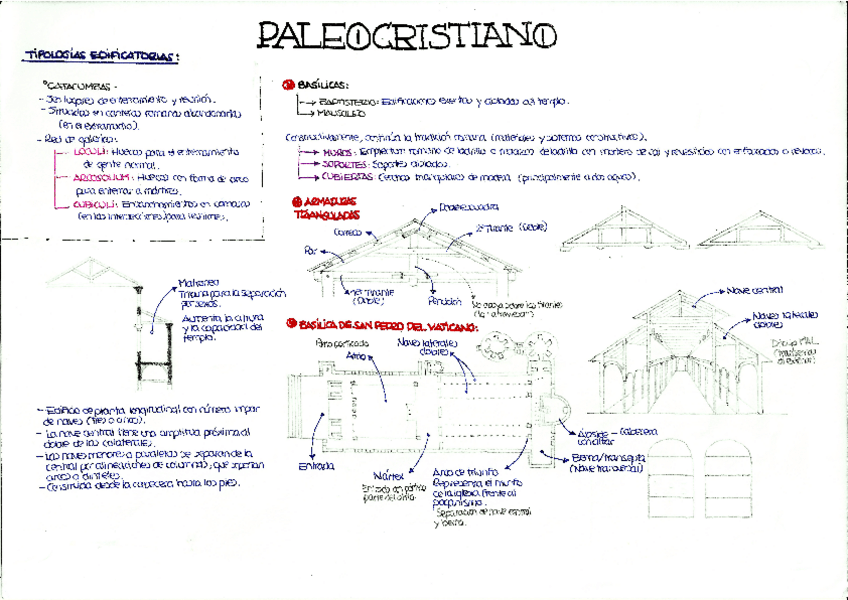 PALEOCRISTIANO
TIPOLOGÍAS EDIFICATORIAS:
CATACUMBAS -
- Son lugares de enterramiento y reunión.
- Situadas en canteras romanas abandonadas
(en el extrarradio).
- Red de galerías:
LOCULI: Huecos para el enterramiento
de gente normal.
ARCOSOLIUM: Huecos con forma de arco
para enterrar a mártires.
CUBICULI: Ensanchamientos en cámaras
(en las intersecciones) para reuniones.
BASÍLICAS:
BAPTISTERIO: Edificaciones exentas y aisladas del templo.
MAUSOLEO
Constructivamente, continúa la tradición romana (materiales y sistemas constructivos).
MUROS: Emplectum romano de ladrillo o mazizos de ladrillo con mortero de cal y revestidos con enfoscados o revocos.
SOPORTES: Soportes aislados.
CUBIERTAS: Cerchas trianguladas de madera (principalmente a dos aguas).
ARMADURAS
TRIANGULADAS
Correas
Par
2º Tirante (Doble)
1er Tirante
(Doble)
Pendolón
No apoya sobre los tirantes
Matroneo
Tribuna para la separación
por sexos.
Aumenta la altura
y la capacidad del
templo.
Nave central
Naves laterales
dobles
BASÍLICA DE SAN PEDRO DEL VATICANO:
Atrio porticado
Atrio
Naves laterales
dobles
Entrada
Nártex
Arco de triunfo
Representa el triunfo
de la iglesia frente al
paganismo.
Separación de nave central
y bema.
Ábside - Cabecera
con altar
Bema/transepto
(Nave transversal)
- Edificio de planta longitudinal con número impar
de naves (tres o cinco).
- La nave central tiene una amplitud próxima al
doble de las colaterales.
- Las naves menores o paralelas se separan de la
central por alineaciones de columnas, que soportan
arcos o dinteles.
- Construida desde la cabecera hasta los pies.